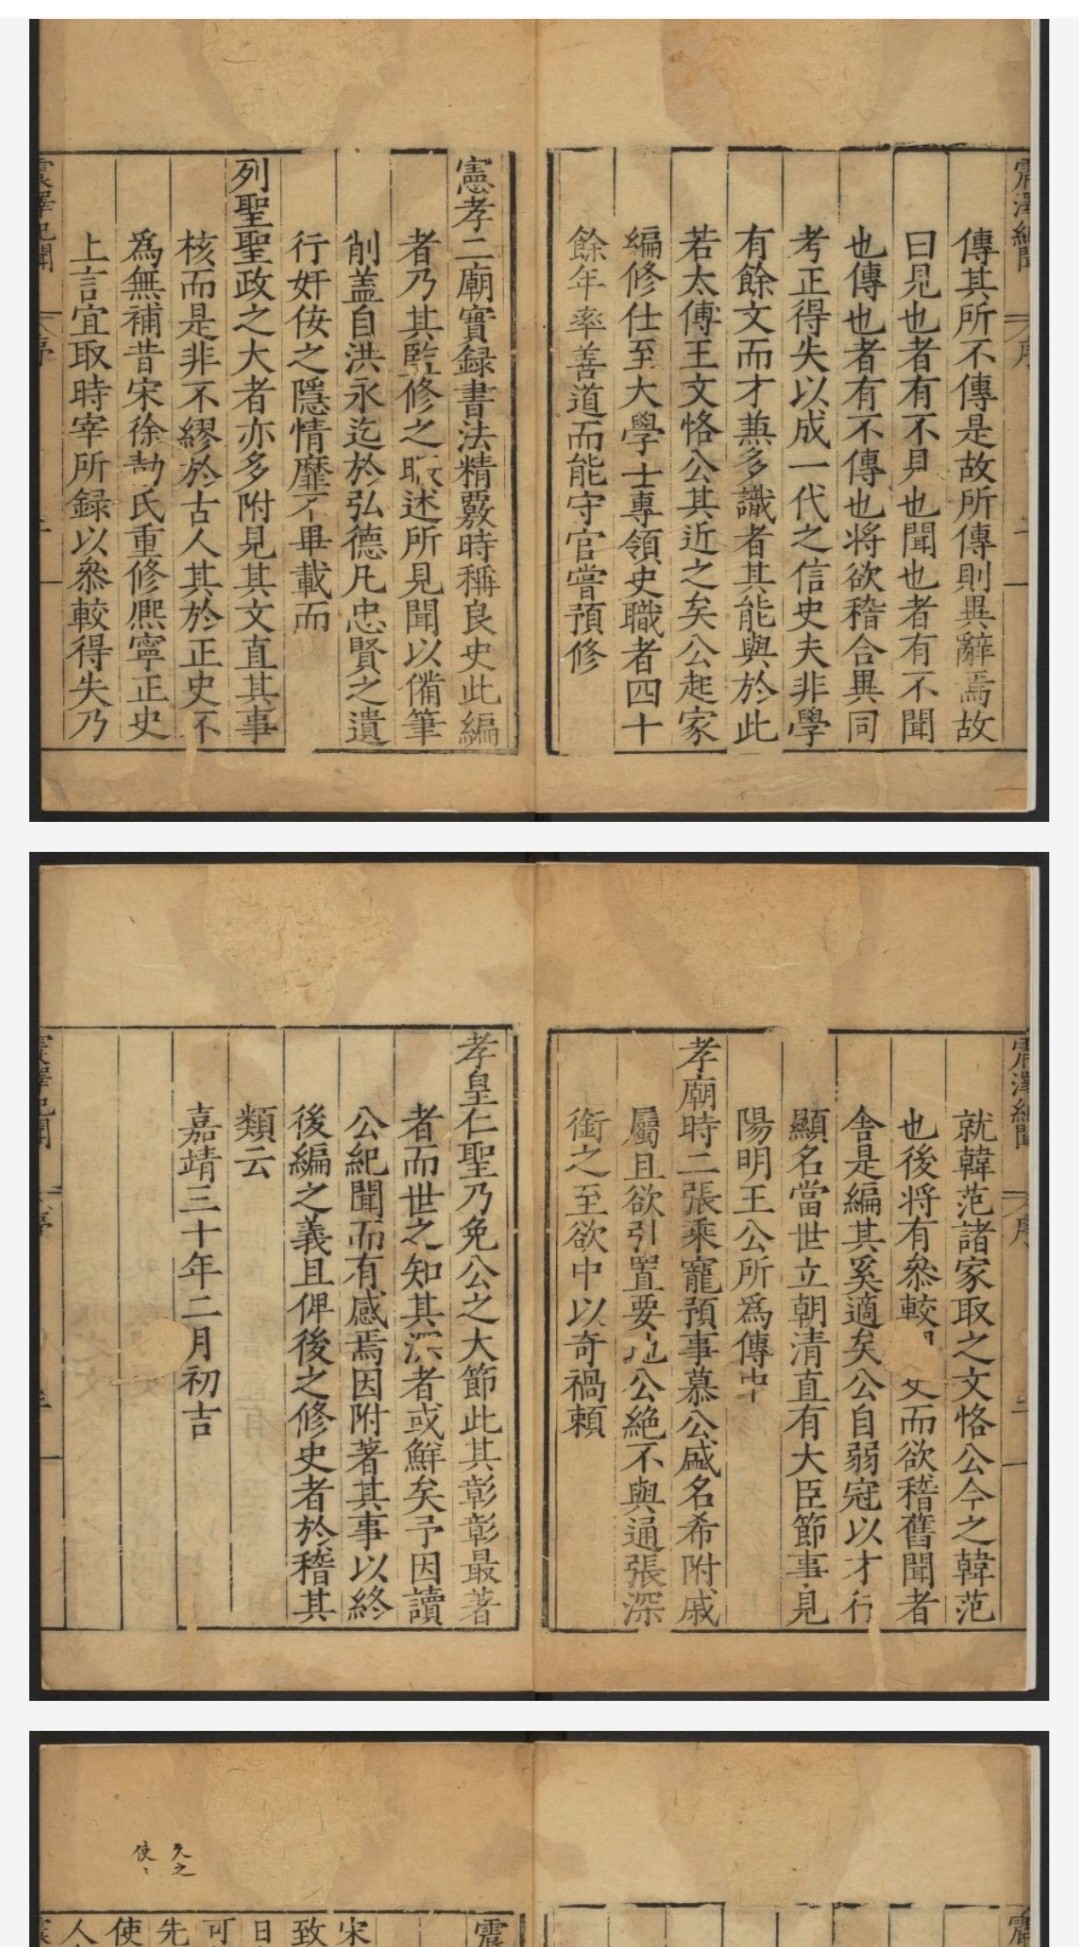 傳其所不傳是故所傳則異辭焉故
曰見也者有不見也聞也者有不聞
也傳也者有不傳也将欲稽合異同
考正得失以成一代之信史夫非學
有餘文而才兼多識者其能與於此
若太傅王文恪公其近之矣公起家
編修仕至大學士專領史職者四十
餘年率善道而能守官嘗預修
憲孝二廟實録書法精覈時稱良史此編
者乃其監修之 述所見聞以備筆
削盖自洪永迄於弘德凡忠賢之遺
行奸佞之隱情靡不畢載而
列聖聖政之大者亦多附見其文直其事
核而是非不繆於古人其於正史不
爲無補昔宋徐勣氏重修熈寧正史
上言宜取時宰所録以叅較得失乃
震澤紀聞
就韓范諸家取之文恪公今之韓范
也後将有叅較 文而欲稽舊聞者
舎是編其奚適矣公自弱冠以才行
顯名當世立朝清直有大臣節事見
陽明王公所爲傳中
孝廟時二張乘寵預事慕公盛名希附戚
屬且欲引置要地公絶不與通張深
銜之至欲中以奇禍頼
孝皇仁聖乃免公之大節此其彰彰最著
者而世之知其深者或鮮矣予因讀
公紀聞而有感焉因附著其事以終
後編之義且俾後之修史者於稽其
類云
嘉靖三十年二月初吉
久之
使
震
宋
致
日
可
先
使
人